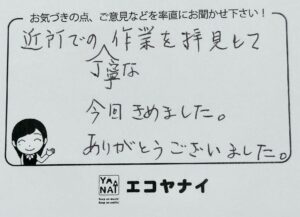 お気づきの点、ご意見などを率直にお聞かせ下さい!
近所での作業を拝見して
丁寧な
今回きめました。
ありがとうございました。
YA
NAI
エコヤナイ